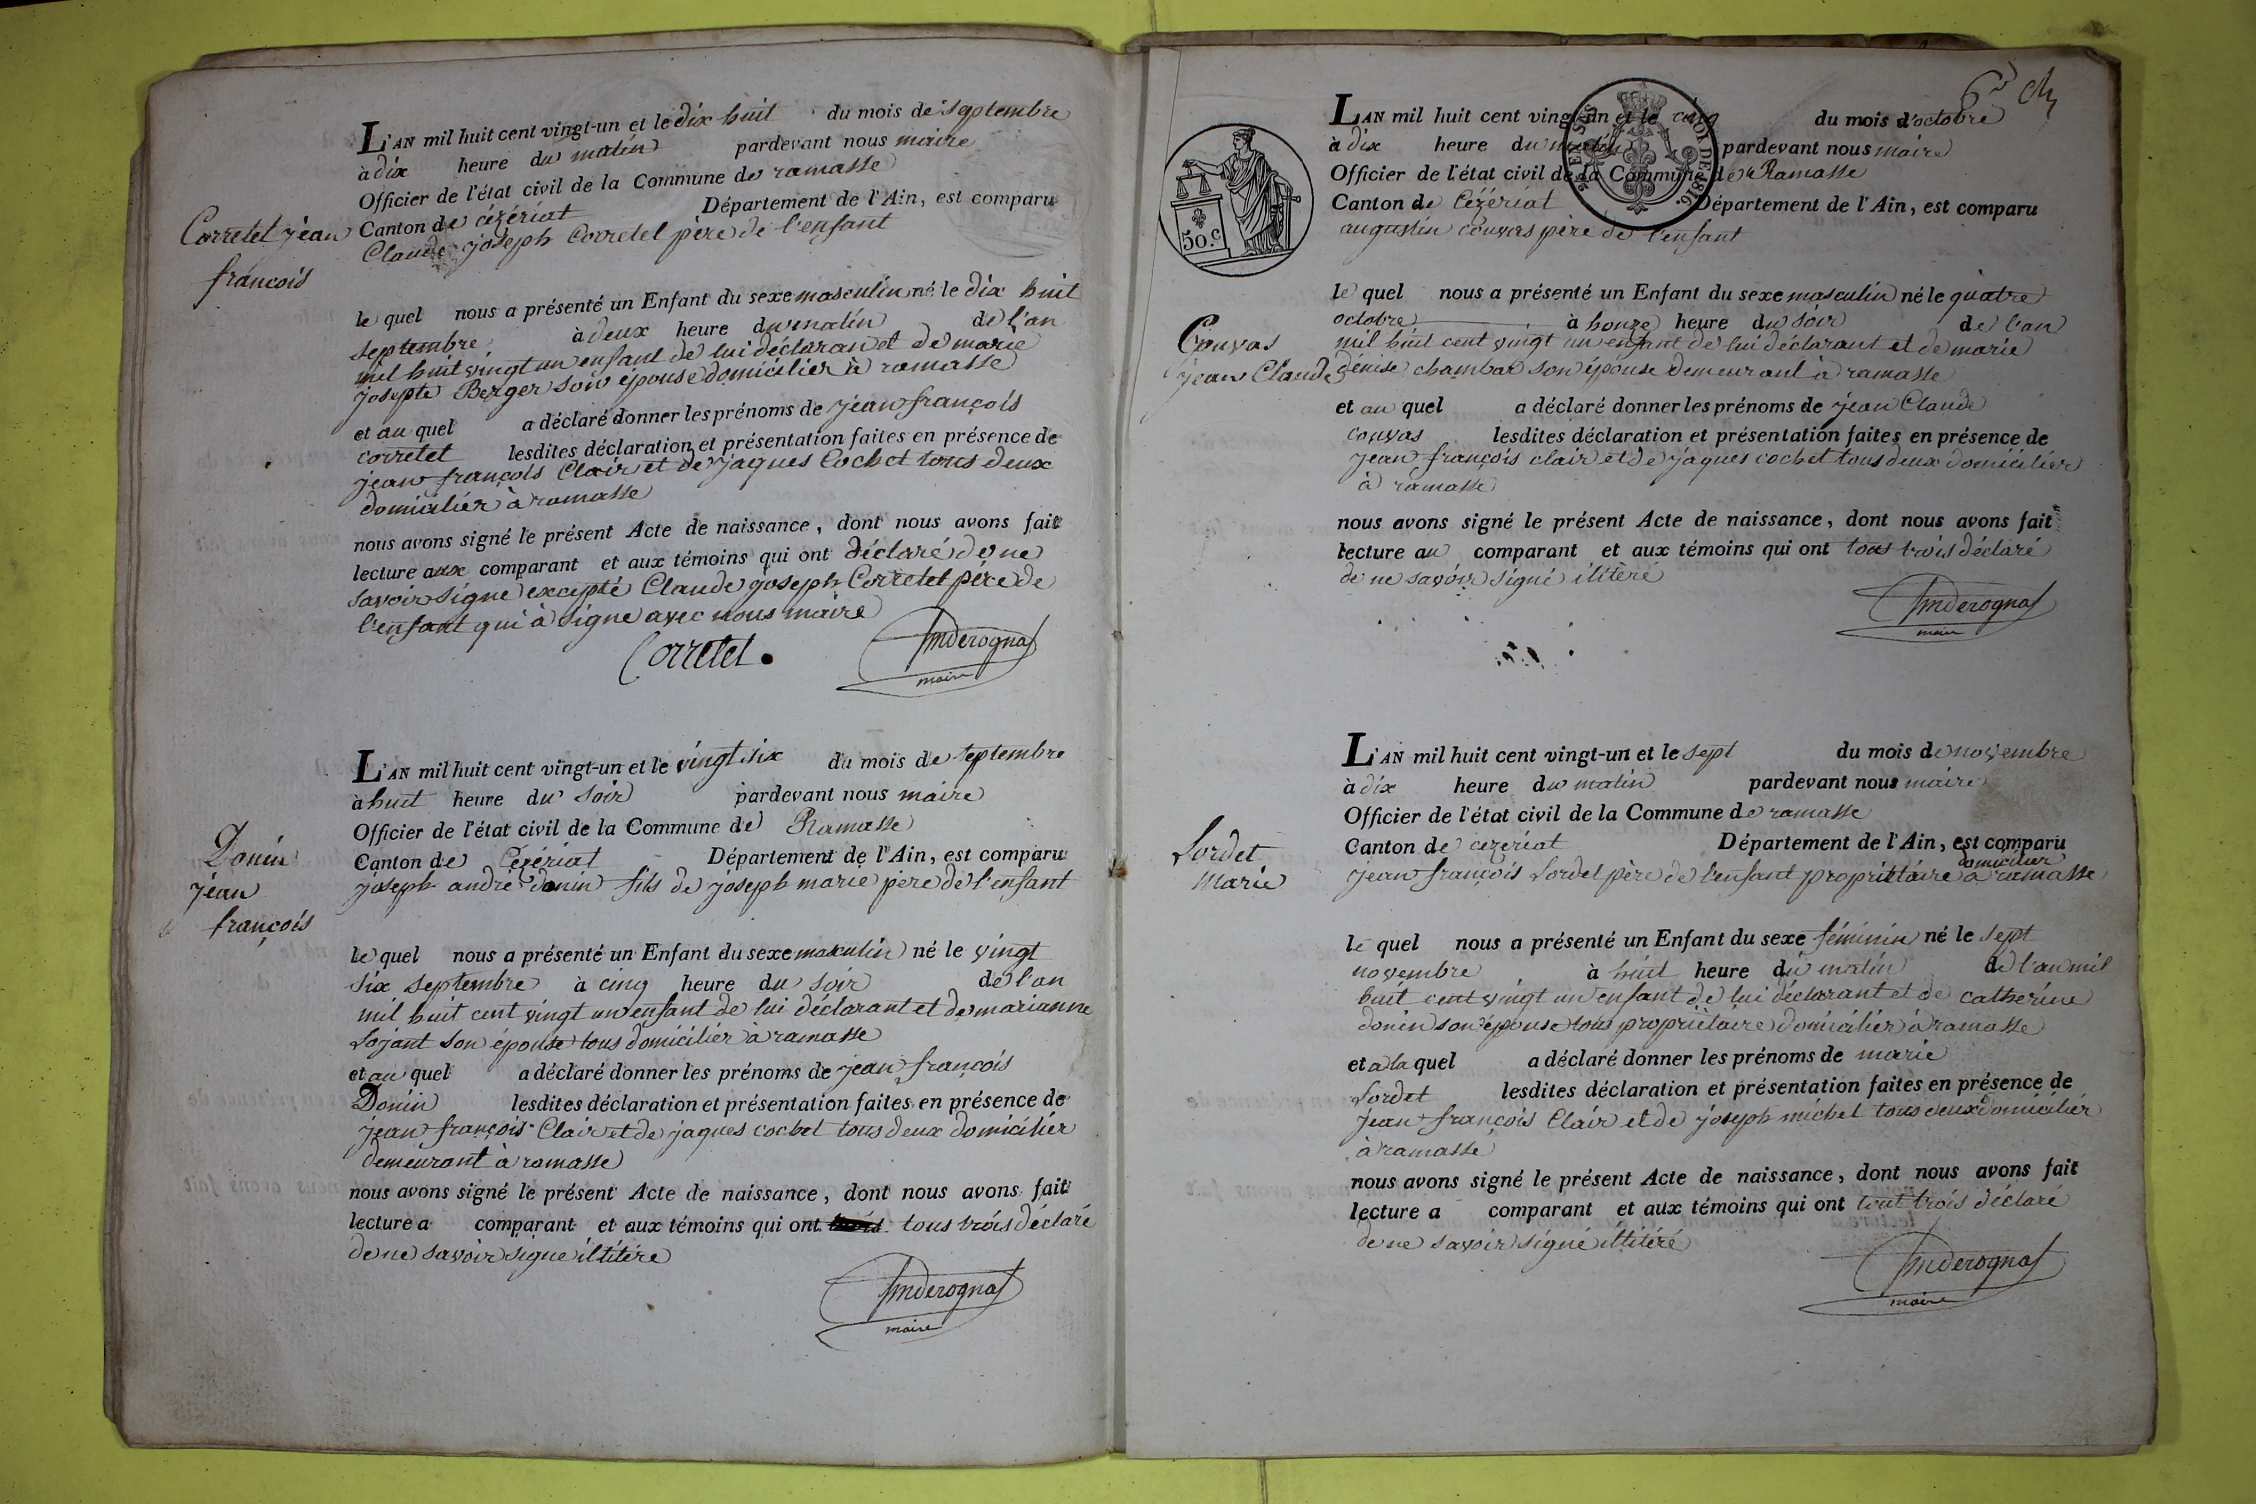 L'AN mil huit cent vingt-un et le dix huit du mois de septembre
à dix heure du matin pardevant nous maire
Officier de l'état civil de la Commune de ramasse
Canton de cézériat Département de l'Ain, est comparu
Claude joseph Corretet père de l'enfant
Corretet jean
françois
le quel nous a présenté un Enfant du sexe masculin né le dix huit
septembre à deux heure du matin de l'an
mil huit vingt un enfant de lui déclarant et de marie
josepte Berger son épouse domicilier à ramasse
et au quel a déclaré donner les prénoms de jean françois
corretet lesdites déclaration et présentation faites en présence de
jean françois Clair et de jaques Cochet tous deux
domicilier à ramasse
nous avons signé le présent Acte de naissance, dont nous avons fait
lecture aux comparant et aux témoins qui ont déclaré de ne
savoir signe excepté Claude joseph Corretet père de
l'enfant qui à signe avec nous maire
Corretet.
maire
L'AN mil huit cent vingt-un et le vingt six du mois de septembre
à huit heure du soir pardevant nous maire
Officier de l'état civil de la Commune de Ramasse
Canton de Cézériat Département de l'Ain, est comparu
joseph andré donin fils de joseph marie père de l'enfant
Donin
jean
françois
le quel nous a présenté un Enfant du sexe masculin né le vingt
six septembre à cinq heure du soir de l'an
mil huit cent vingt un enfant de lui déclarant et de marianne
Sojant son épouse tous domicilier à ramasse
et au quel a déclaré donner les prénoms de jean françois
Donin lesdites déclaration et présentation faites en présence de
jean françois Clair et de jaques cochet tous deux domicilier
demeurant à ramasse
nous avons signé le présent Acte de naissance, dont nous avons fait
lecture a comparant et aux témoins qui ont tous trois déclaré
de ne savoir signe illitére
maire
L'AN mil huit cent vingt-un et le cinq du mois d'octobre
à dix heure du matin pardevant nous maire
Officier de l'état civil de la Commune de Ramasse
Canton de Cézériat Département de l'Ain, est comparu
augustin convas père de l'enfant
50.c
ROI DE 1816.
Convas
jean Claude
le quel nous a présenté un Enfant du sexe masculin né le quatre
octobre à honze heure du soir de l'an
mil huit cent vingt un enfant de lui déclarant et de marie
dénise chambar son épouse demeurant à ramasse
et au quel a déclaré donner les prénoms de jean Claude
convas lesdites déclaration et présentation faites en présence de
jean françois clair et de jaques cochet tous deux domicilier
à ramasse
nous avons signé le présent Acte de naissance, dont nous avons fait
lecture au comparant et aux témoins qui ont tous trois déclaré
de ne savoir signé ilitéré
maire
L'AN mil huit cent vingt-un et le sept du mois de novembre
à dix heure du matin pardevant nous maire
Officier de l'état civil de la Commune de ramasse
Canton de cézériat Département de l'Ain, est comparu
domicilier
jean françois Sordet père de l'enfant propriétaire à ramasse
Sordet
Marie
le quel nous a présenté un Enfant du sexe féminin né le sept
novembre à huit heure du matin de l'an mil
huit cent vingt un enfant de lui déclarant et de catherine
donin son épouse tous propriétaire domicilier à ramasse
et a la quel a déclaré donner les prénoms de marie
Sordet lesdites déclaration et présentation faites en présence de
jean françois Clair et de joseph michel tous deux domicilier
à ramasse
nous avons signé le présent Acte de naissance, dont nous avons fait
lecture a comparant et aux témoins qui ont tout trois déclaré
de ne savoir signé illitéré
maire